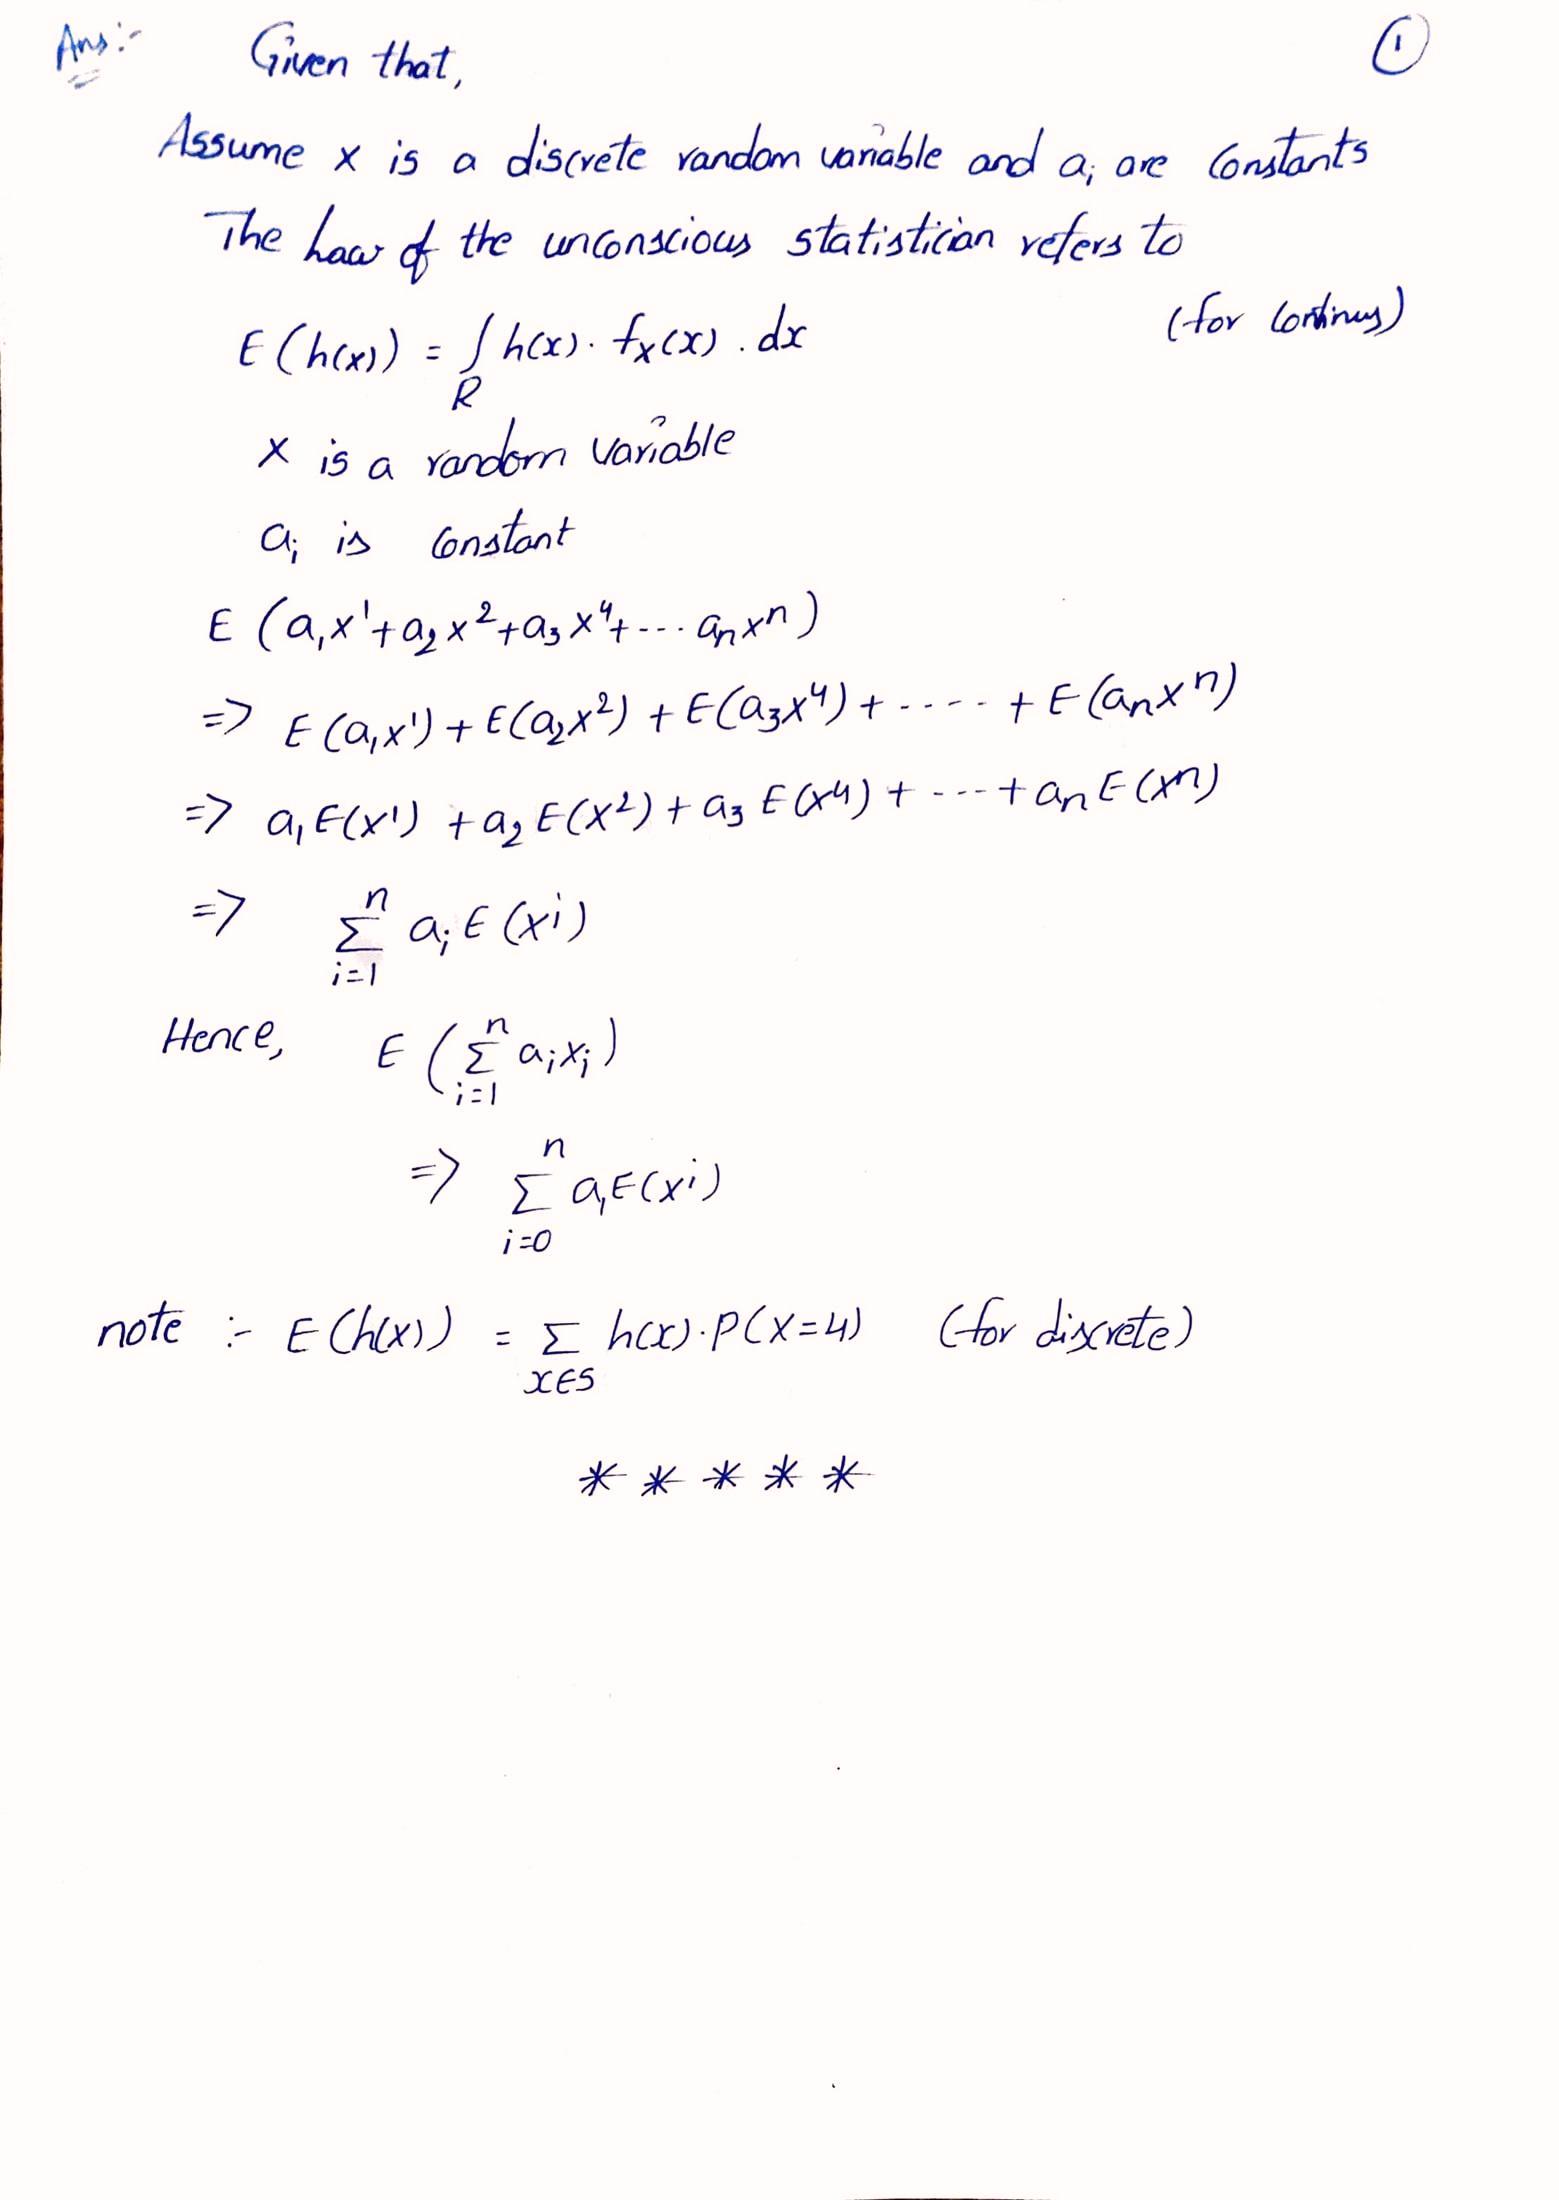 Ans :- Given that, 1
Assume x is a discrete random variable and aᵢ are constants
The Law of the unconscious statistician refers to
E(h(x)) = ∫_R h(x). f_X(x). dx (for continus)
X is a random variable
aᵢ is constant
E (a₁x¹+a₂x²+a₃x⁴+--- aₙxⁿ)
=> E(a₁x¹) + E(a₂x²) + E(a₃x⁴) + ---- + E(aₙxⁿ)
=> a₁E(x¹) + a₂E(x²) + a₃E(x⁴) + --- + aₙE(xⁿ)
=> Σ_{i=1}^{n} aᵢE(xⁱ)
Hence, E (Σ_{i=1}^{n} aᵢxᵢ)
=> Σ_{i=0}^{n} a₁E(xⁱ)
note :- E(h(x)) = Σ_{x∈S} h(x).P(X=4) (for discrete)
* * * * *